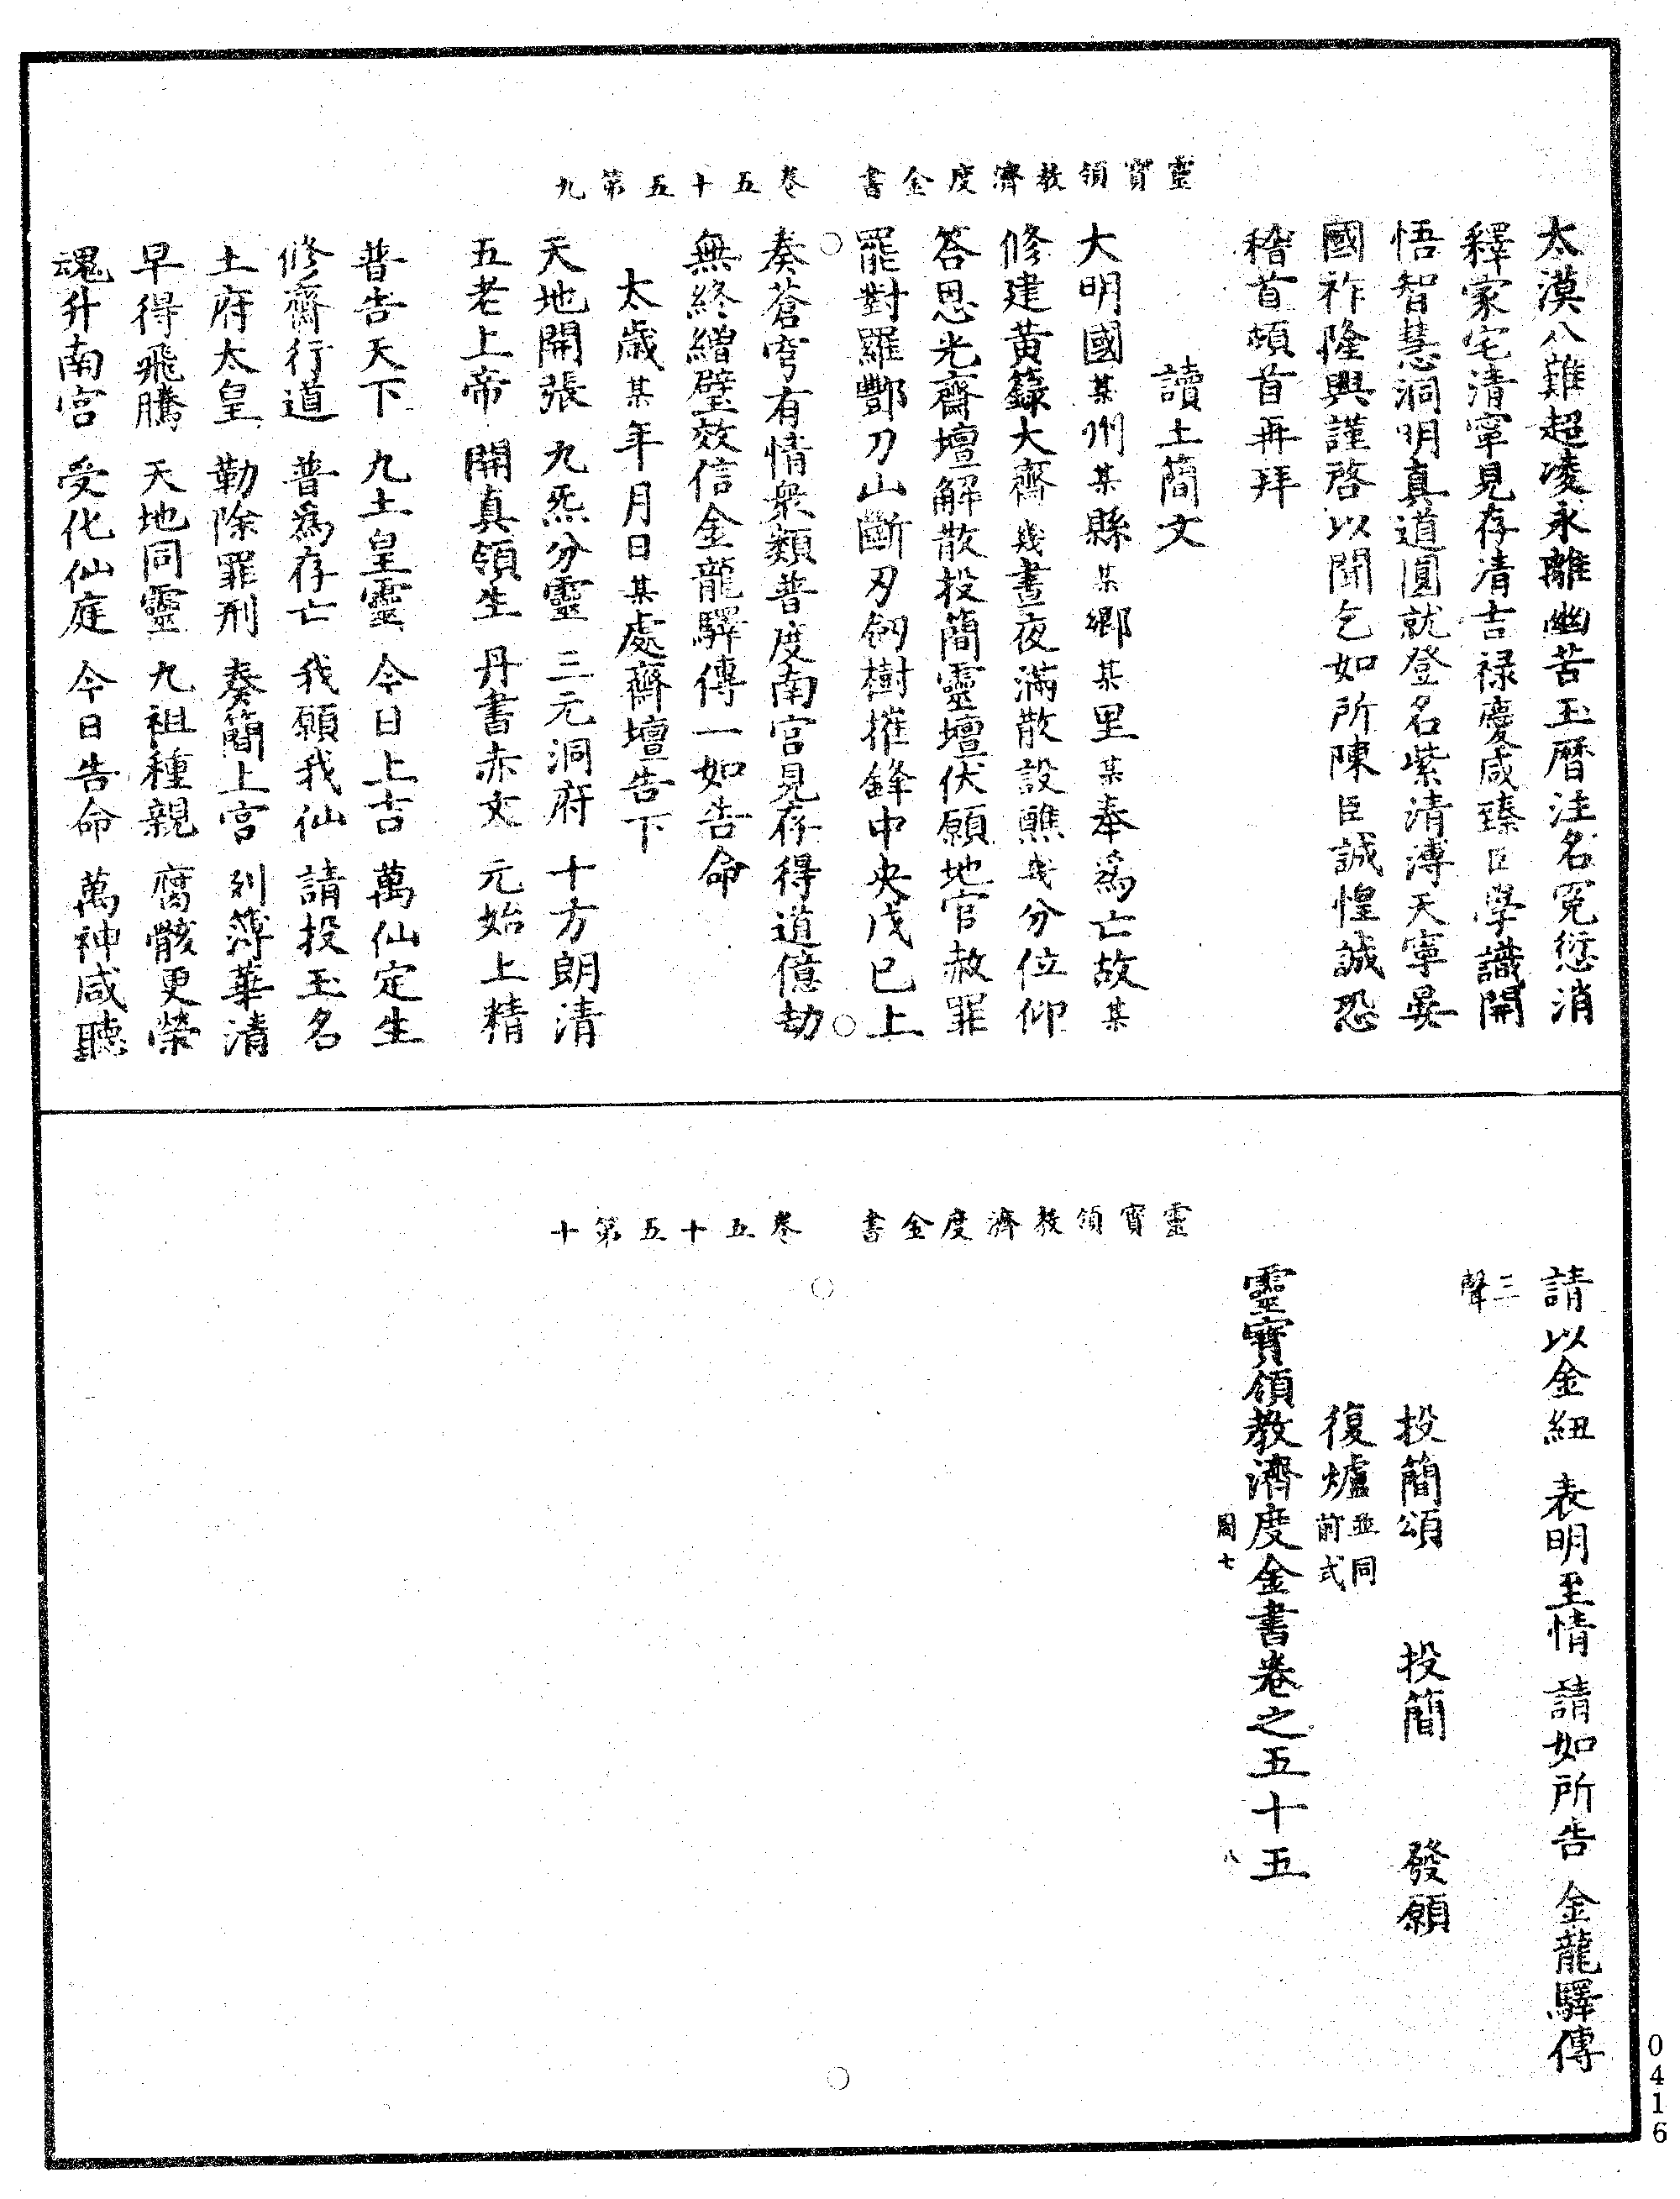 靈寶領教濟度金書　卷五十五第九
太漠八難超凌永離幽苦玉曆注名冤愆消
釋家宅清寧見存清吉祿慶咸臻臣學識開
悟智慧洞明真道圓就登名紫清溥天寧晏
國祚隆興謹啓以聞乞如所陳臣誠惶誠恐
稽首頓首再拜
讀土簡文
大明國某州某縣某鄉某里某奉爲亡故某
修建黃籙大齋幾晝夜滿散設醮幾分位仰
答恩光齋壇解散投簡靈壇伏願地官赦罪
罷對羅酆刀山斷刃劒樹摧鋒中央戊己上
奏蒼穹有情衆類普度南宫見存得道億劫
無終繒璧效信金龍驛傳一如告命
太歲某年月日某處齋壇告下
天地開張　九炁分靈　三元洞府　十方朗清
五老上帝　開真領生　丹書赤文　元始上精
普告天下　九土皇靈　今日上吉　萬仙定生
修齋行道　普爲存亡　我願我仙　請投玉名
土府太皇　勒除罪刑　奏簡上宫　列簿華清
早得飛騰　天地同靈　九祖種親　腐骸更榮
魂升南宫　受化仙庭　今日告命　萬神咸聽
靈寶領教濟度金書　卷五十五第十
請以金紐　表明至情　請如所告　金龍驛傳
三聲
投簡頌　投簡　發願
復爐並同前式
靈寶領教濟度金書卷之五十五
圖七　八
0416